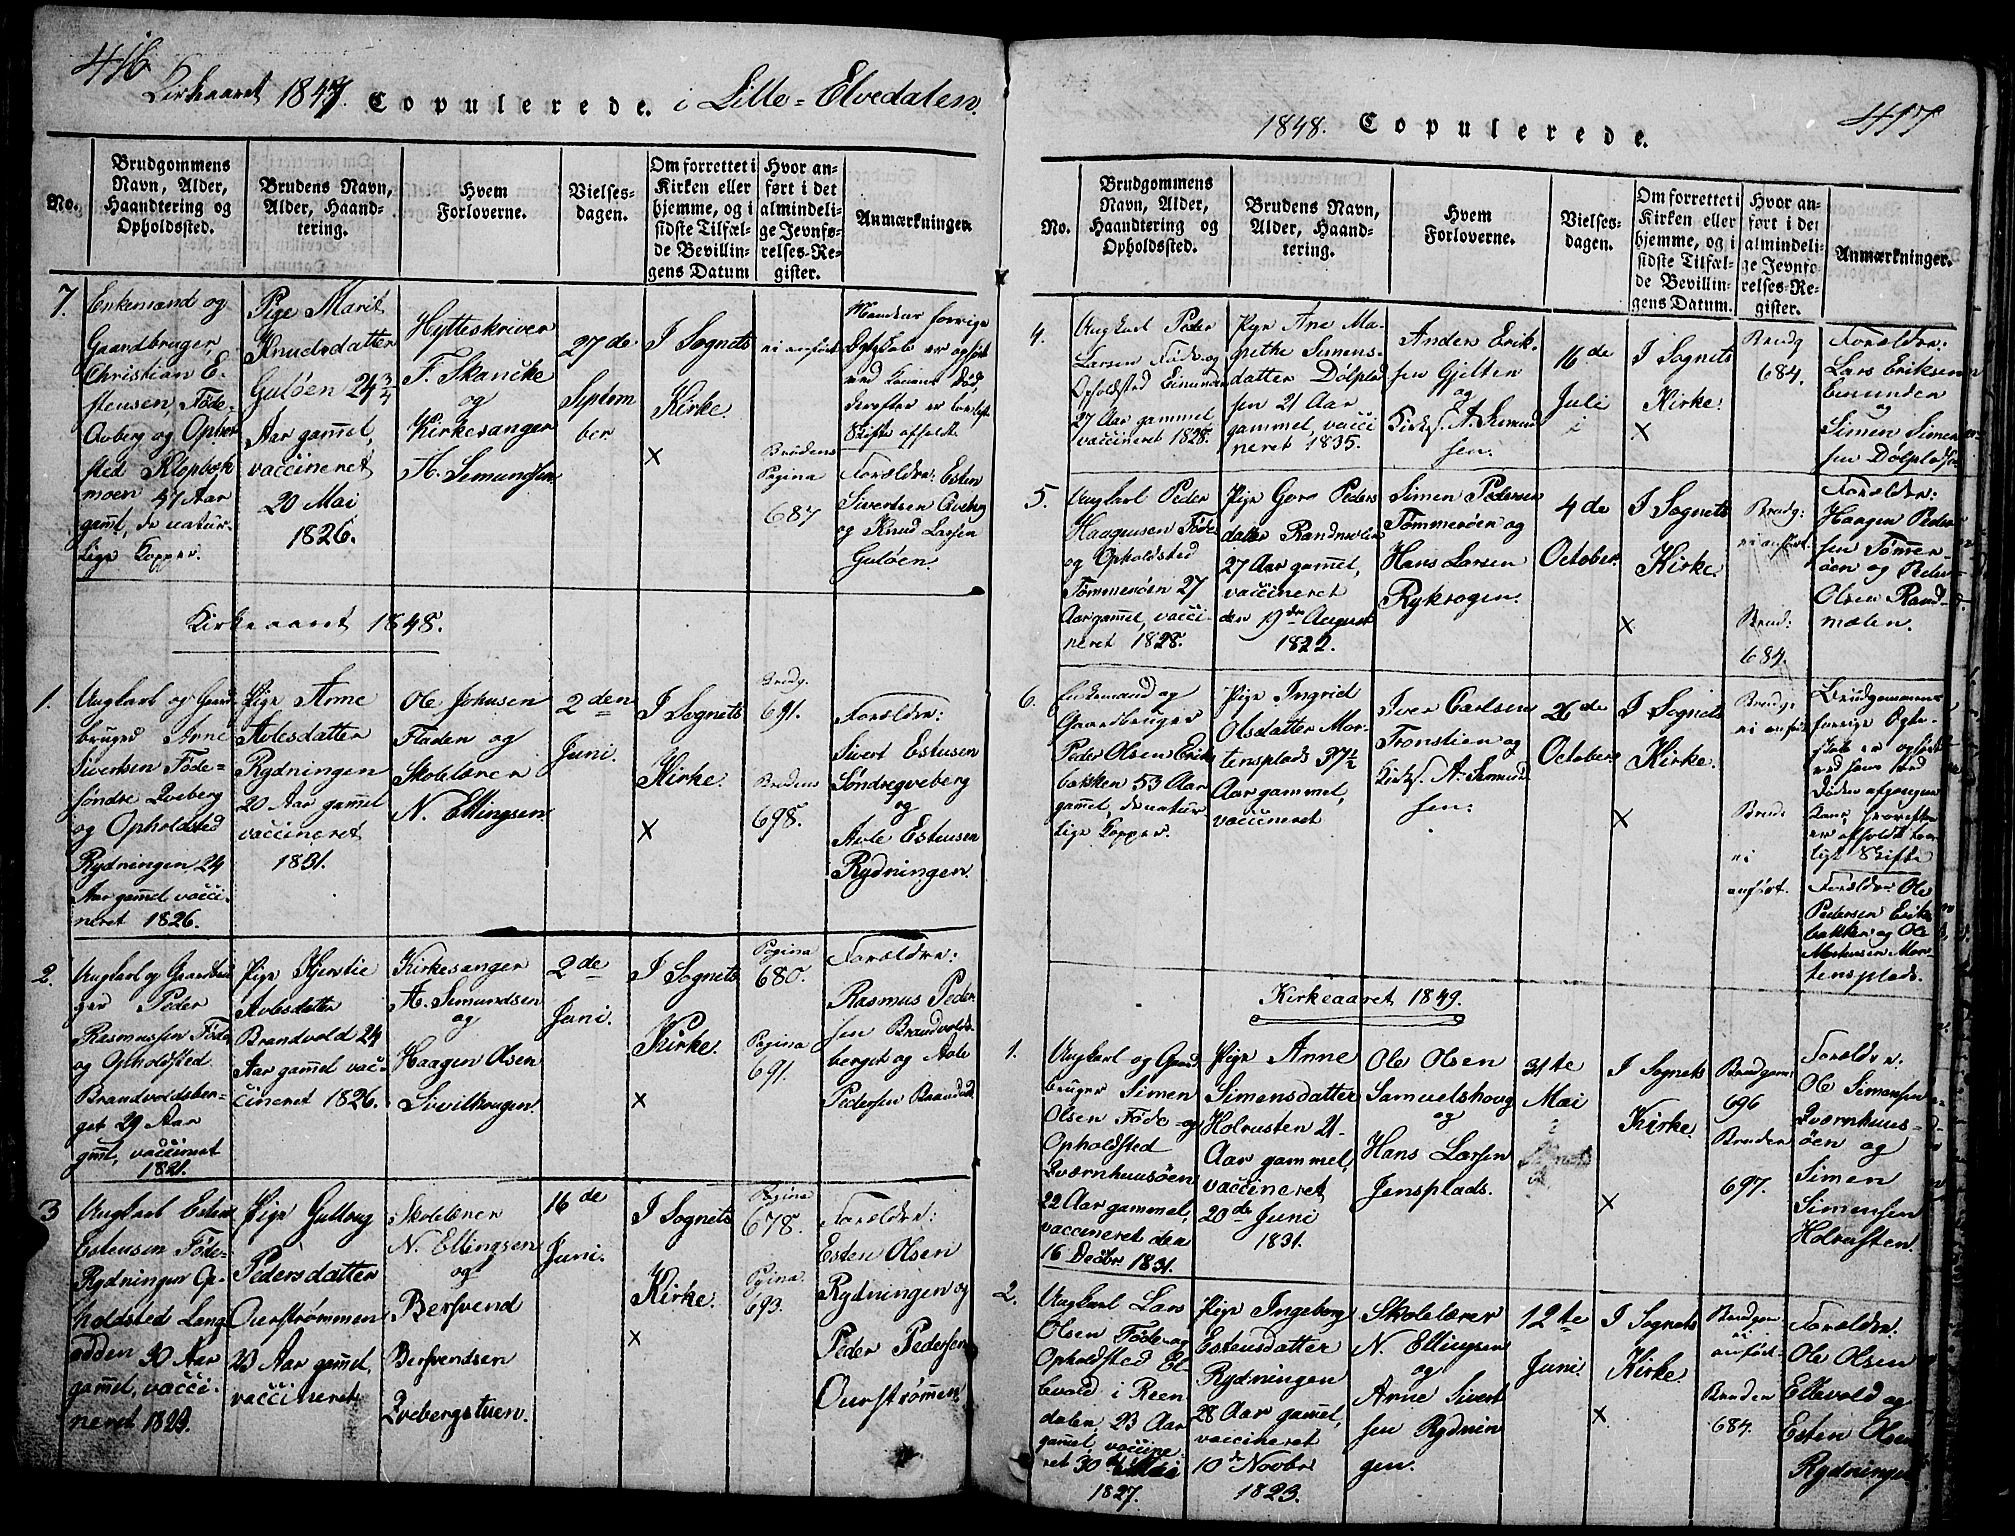 416
Kirkeaaret 1847. Copulerede. i Lille-Elvedalen.
No.
Brudgommens
Navn, Alder,
Haandtering og
Opholdssted.
Brudens Navn,
Alder, Haand-
tering.
Hvem
Forloverne.
Vielses-
dagen.
Om forrettet i
Kirken eller
hjemme, og i
sidste Tilfæl-
de Bevillin-
gens Datum
Hvor an-
ført i det
almindeli-
ge Jevnfø-
relses-Re-
gister.
Anmærkninger.
7.
Enkemand og
Gaardbruger,
Christian E-
stensen Føde-
Aaberg og Ophol
sted Klopbæk
moen 47 Aar
gaml, de natur-
lige Kopper.
Pige Marit
Knudsdatter
Guløen 24 3/4
Aar gammel,
vaccineret
20 Mai
1826.
Hytteskriver
F. Skancke
og
Kirkesanger
A. Simundsen
27de
Septem
ber.
I Sognets
Kirke.
x
ei anført
Brudens
Pagina
687
Mandens forrige
er opført
ved Konens Død,
derefter er lovligt
Skifte afholdt.
Forældre: Esten
Sivertsen Aaberg
og Knud Larsen
Guløen.
Kirkeaaret 1848.
1.
Ungkarl og Gaard
bruger Arne
Sivertsen Føde-
søndre Qveberg
og Opholdsted
Rydningen 24
Aar gammel vacci
neret 1826.
Pige Anne
Avlesdatter
Rydningen
20 Aar gammel
vaccineret
1831.
Ole Johnsen
Fladen og
Skolelærer
N. Ellingsen
2den
Juni.
I Sognets
Kirke.
x
Brudg.
691.
Brudens
698.
Forældre:
Sivert Estensen
Søndreqveberg
og
Avle Estensen
Rydningen.
2.
Ungkarl og Gaardbru
ger Peder
Rasmussen Føde
og Opholdsted
Brandvoldsber-
get 29 Aar
gml, vaccineret
1821.
Pige Kjerstie
Avlesdatter
Brandvold 24
Aar gammel vac
cineret 1826.
Kirkesanger
A. Simundsen
og
Haagen Olsen
Sivilhougen.
2de
Juni.
I Sognets
Kirke.
x
Pagina
680.
Pagina
691.
Forældre:
Rasmus Peder
sen Brandvolds-
berget og Avle
Pedersen Brandvold
3
Ungkarl Esten
Estensen Føde-
Rydningen Op-
holdsted Leng
odden 30 Aar
gammel, vacci-
neret 1822.
Pige Gullaug
Pedersdatter
Ourstrømmen
23 Aar gammel,
vaccineret
Skolelærer
N. Ellingsen
og
Bersvend
Bersvendsen
Qvebergstuen.
16de
Juni.
I Sognets
Kirke.
x
Pagina
678.
Pagina
693.
Forældre:
Esten Olsen
Rydningen og
Peder Pedersen
Ourstrømmen.
417
1848. Copulerede.
No.
Brudgommens
Navn, Alder,
Haandtering og
Opholdssted.
Brudens Navn,
Alder, Haand-
tering.
Hvem
Forloverne.
Vielses-
dagen.
Om forrettet i
Kirken eller
hjemme, og i
sidste Tilfæl-
de Bevillin-
gens Datum.
Hvor an-
ført i det
almindeli-
ge Jevnfø-
relses-Re-
gister.
Anmærkninger.
4.
Ungkarl Peder
Larsen Føde og
Opholdsted Eimunden
27 Aar gammel
vaccineret 1828.
Pige Ane Ma-
grethe Simens-
datter Dølplad
sen 21 Aar
gammel, vacci
neret 1835.
Anders Erik-
sen Gjelten
og
Kirks. A. Simund
sen.
16de
Juli
I Sognets
Kirke.
x
Brudg
684.
Forældre:
Lars Eriksen
Eimunden
og
Simen Simen
sen Dølpladsen
5.
Ungkarl Peder
Haagensen Føde
og Opholdsted
Tømmerøen 27
Aar gammel, vacci-
neret 1828.
Pige Goro Peders
datter Randmælen
27 Aar gammel,
vaccineret
den 19de August
1822.
Simen Pedersen
Tømmerøen og
Hans Larsen
Rykrogen.
4de
October.
I Sognets
Kirke.
x
Brudg:
ei anført.
Brud:
684.
Forældre:
Haagen Peder
sen Tømmer-
øen og Peder
Olsen Rand-
mælen.
6.
Enkemand og
Gaardbruger
Peder Olsen Erik
bakken 53 Aar
gammel, de natur
lige Kopper.
Pige Ingrid
Olsdatter Mor-
tensplads 37 1/2
Aar gammel,
vaccineret
Iver Carlsen
Tronstien og
Kirks. A. Simund
sen.
26de
October
I Sognets
Kirke.
x
Brudg:
ei anført
Brud:
ei
anført.
Brudgommens
forrige Egte-
skab er opført
ved hans ved
Døden afgangne
Kone, hvorefter
er afholdt lov-
ligt Skifte
Forældre: Ole
Pedersen Erik
bakken og Ole
Mortensen Mor-
tensplads.
Kirkeaaret 1849.
1.
Ungkarl og Gaard
bruger Simen
Olsen Føde-og
Opholdsted
Qværnhuusøen
22 Aar gammel,
vaccineret den
16 Decbr 1831.
Pige Anne
Simensdatter
Holrusten 21-
Aar gammel,
vaccineret
20de Juni
1831.
Ole Olsen
Samuelshoug
og
Hans Larsen
Jensplads.
31te
Mai
I Sognets
Kirke.
x
Brudgom:
696
Bruden
697.
Forældre:
Ole Simensen
Qværnhuus-
øen og
Simen
Simensen
Holrusten.
2.
Ungkarl Lars
Olsen Føde-og
Opholdsted El
levold i Reen
dalen, 23 Aar
gammel, vaccine
ret 30te Mai
1827.
Pige Ingeborg
Estensdatter
Rydningen
28 Aar gammel,
vaccineret
10de Novbr
1823.
Skolelærer
N. Ellingsen
og
Arne Sivert
sen Rydnin
gen.
12te
Juni.
I Sognets
Kirke.
x
Brudgom
ei anført.
Bruden
684.
Forældre:
Ole Olsen
Ellevold og
Esten Olsen
Rydningen